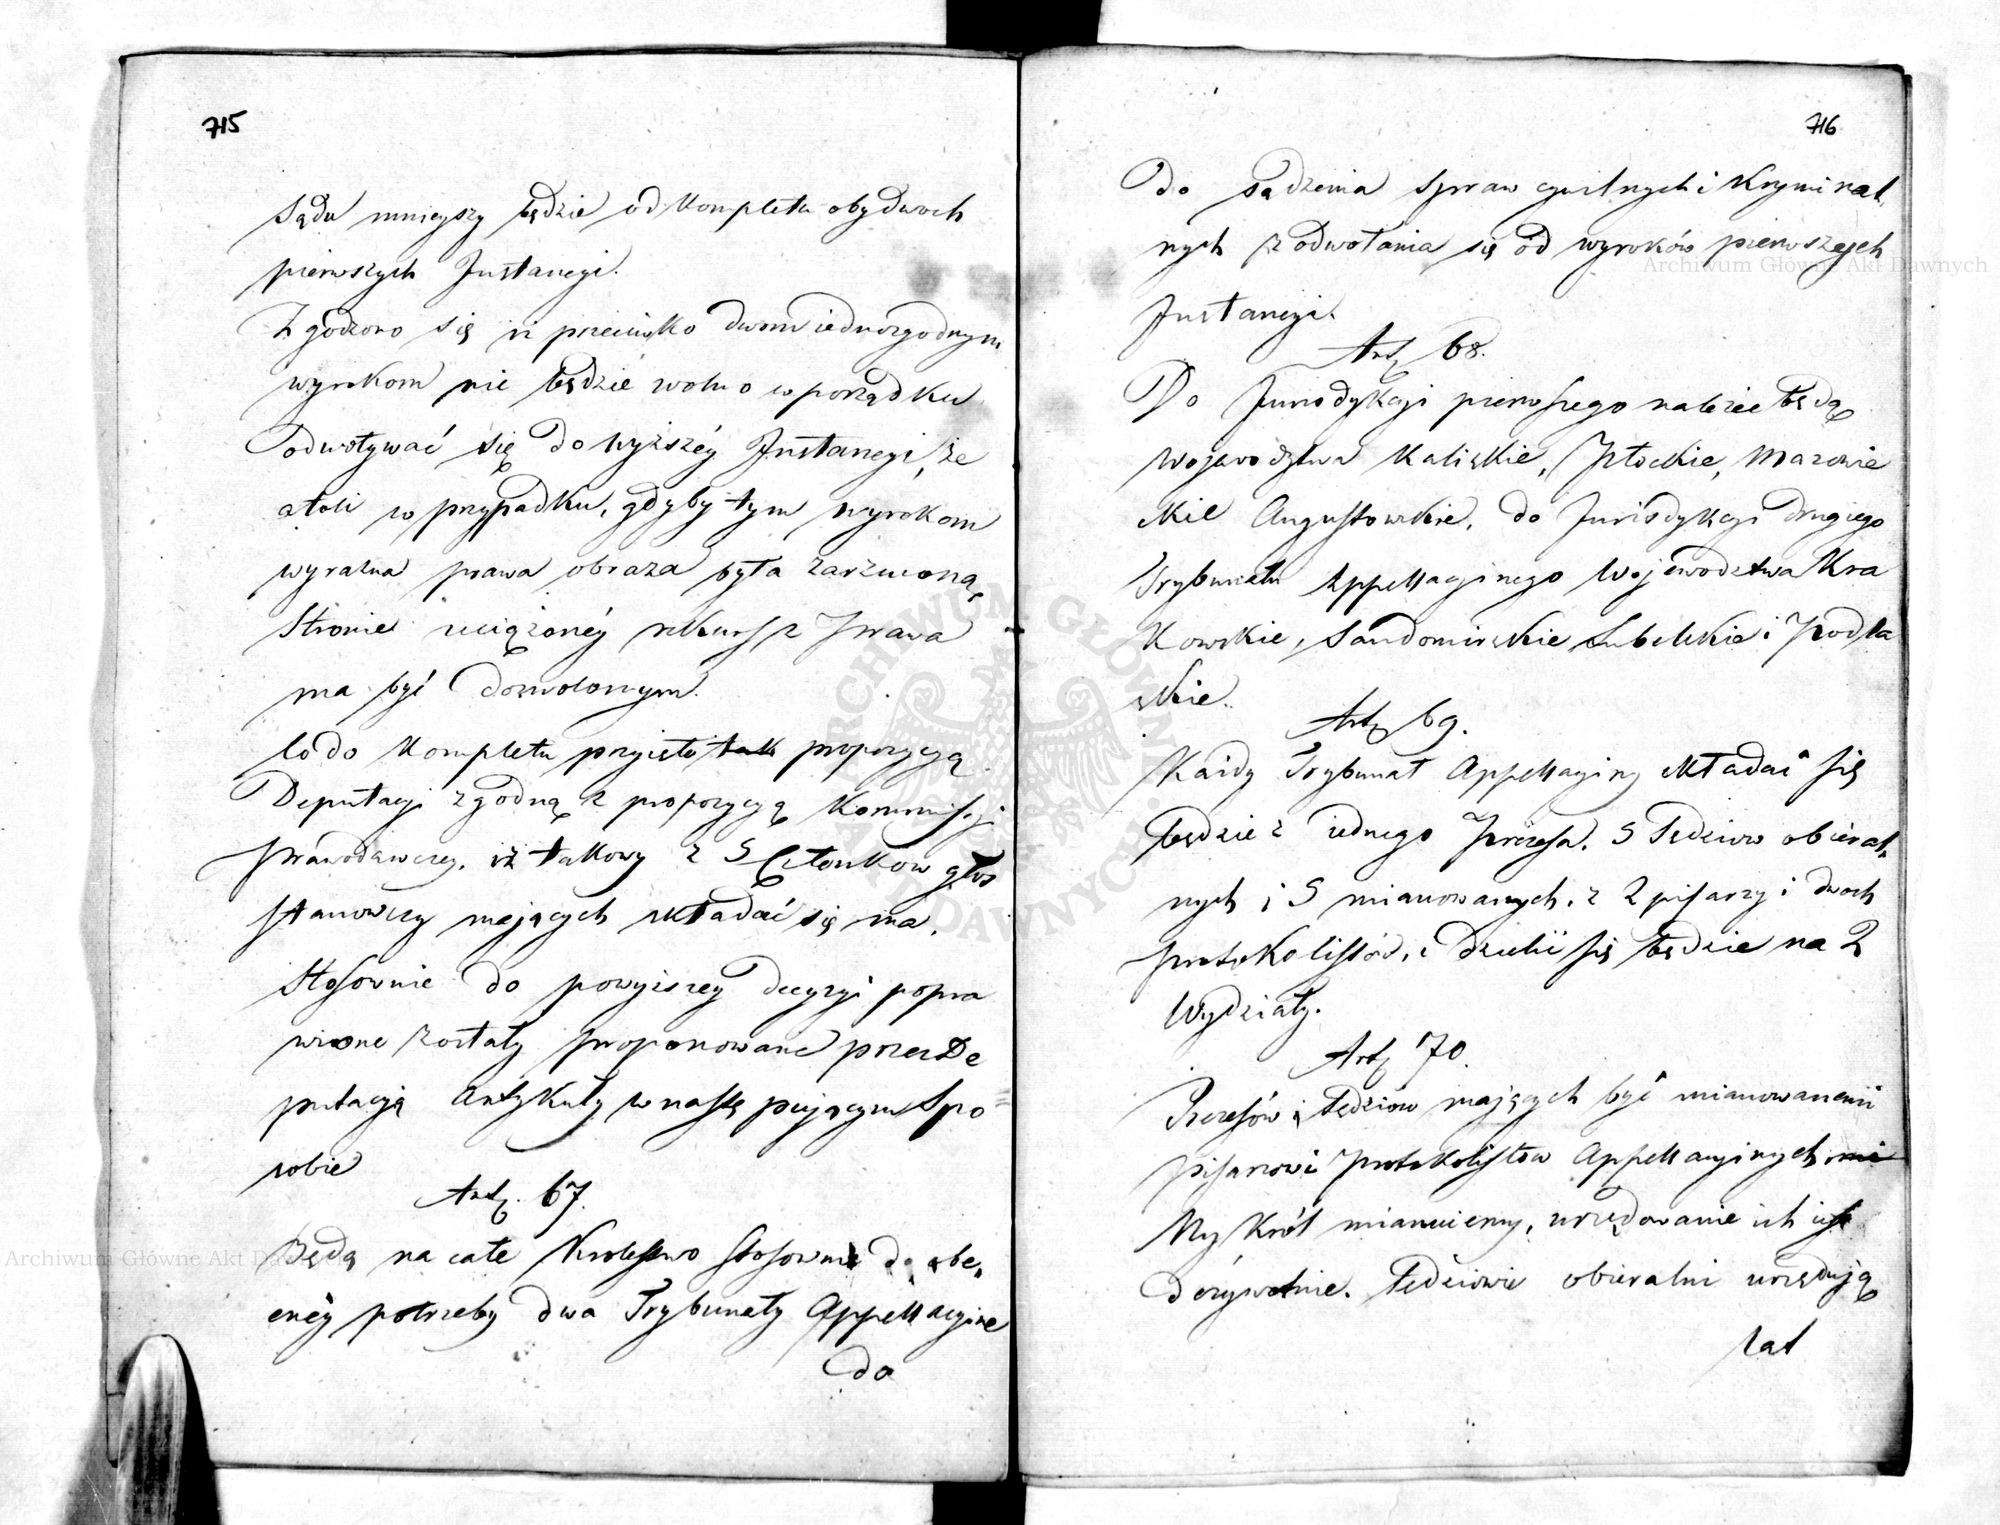 715
Sądu mnieyszy będzie od Kompletu obydwoch
pierwszych Instancyi.
Zgodzono się iż przeciwko dwom iednozgodnym
wyrokom nie będzie wolno w porządku
odwoływać się do wyższéy Instancyi, że
atoli w przypadku, gdyby tym wyrokom
wyraźna prawa obraza była zarzuconą,
Stronie uciążonéy rekurs z Prawa
ma być dozwolonym.
Co do Kompletu przyięto tak propozycyą
Deputacyi zgodną z propozycyą Kommissyi
Prawodawczey, iż takowy z 5 Członkow głos
stanowczy maiących składać się ma.
Stosownie do powyższey decyzyi popra
wione zostały proponowane przez De
putacyą Artykuły w nastę puiącym Spo
sobie
Art. 67.
Będą na całe Krolestwo stosownie do obe„
cnéy potrzeby dwa Trybunały Appellacyine
do
716
Do sądzenia Spraw cywilnych i Kryminal„
nych z odwołania się od wyroków pierwszych
Instancyi.
Art. 68.
Do Jurisdykcyi pierwszego należeć będą
Wojewodztwa Kaliskie, Płockie, Mazowie
ckie Augustowskie, do Jurisdykcyi drugiego
Trybunału Appellacyinego Wojewodztwa Kra
Kowskie, Sandomirskie Lubelskie i Podla
skie.
Art. 69.
Każdy Trybunał Appellacyiny składać się
będzie z iednego Prezesa, 5 Sędziow obieral„
nych i 5 mianowanych, z 2 pisarzy i dwoch
protokolistów, i dzielić się będzie na 2
Wydziały.
Art. 70.
Prezesów i Sędziow maiących być mianowanemi
pisarzow i Protokolistow Appellacyinych mi
My Król mianuiemy, urzędowanie ich iest
dożywotnie. Sędziowie obieralni urzęduią
lat
Archiwum Główne Akt Dawnych
Archiwum Główne Akt Dawnych
ARCHIWUM GŁÓWNE AKT DAWNYCH